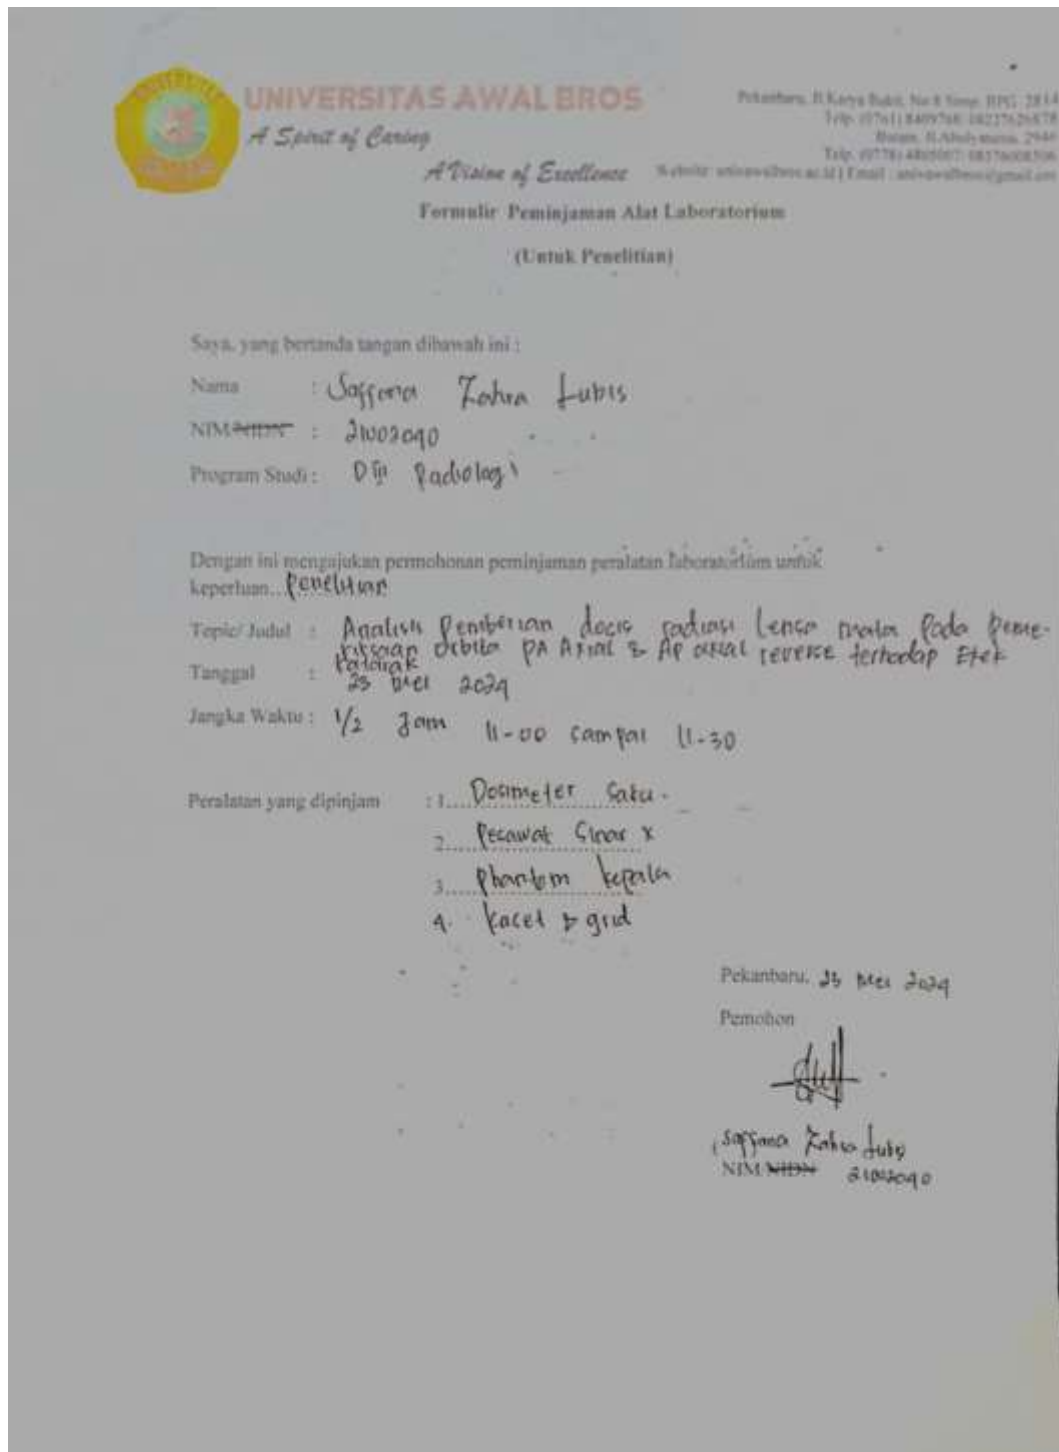 UNIVERSITAS AWAL BROS
A Spirit of Caring
A Vision of Excellence
Pekanbaru, Jl.Karya Bakti, No 8 Simp. BPG
Telp. (0761) 8409768
Batam, Jl.Abulyatama
Website: univawalbros.ac.id | Email : univawalbros@gmail.com
Formulir Peminjaman Alat Laboratorium
(Untuk Penelitian)
Saya, yang bertanda tangan dibawah ini :
Nama : Saffana Zahra Lubis
NIM/NIDN : 21002090
Program Studi : DIII Radiologi
Dengan ini mengajukan permohonan peminjaman peralatan laboratorium untuk
keperluan...Penelitian
Topic/ Judul : Analisis Pemberian docis radiasi Lensa mata Pada peme-
riksaan Orbita PA Axial & AP axial reverse terhadap Efek
Katarak
Tanggal : 23 Mei 2024
Jangka Waktu : 1/2 Jam 11-00 sampai 11-30
Peralatan yang dipinjam : 1. Dosimeter Saku.
2. Pecawat Sinar X
3. Phantom kepala
4. Kacet & grid
Pekanbaru, 23 Mei 2024
Pemohon
Saffana Zahra Lubis
NIM/NIDN 21002090